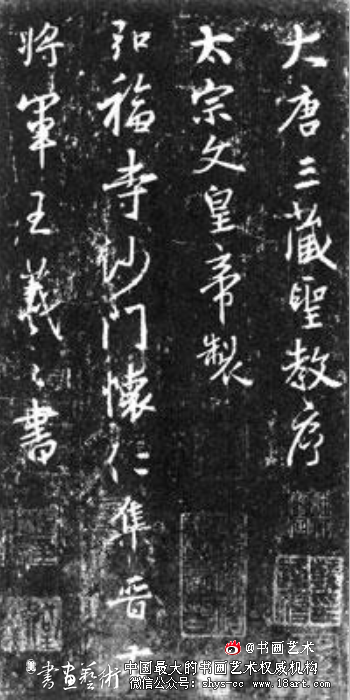 大唐三藏聖教序
太宗文皇帝製
弘福寺沙門懷仁集晉
將軍王羲之書
@书画艺术
書畫藝術
中国最大的书画艺术权威机构
微信公众号：shys-cc www.18art.com